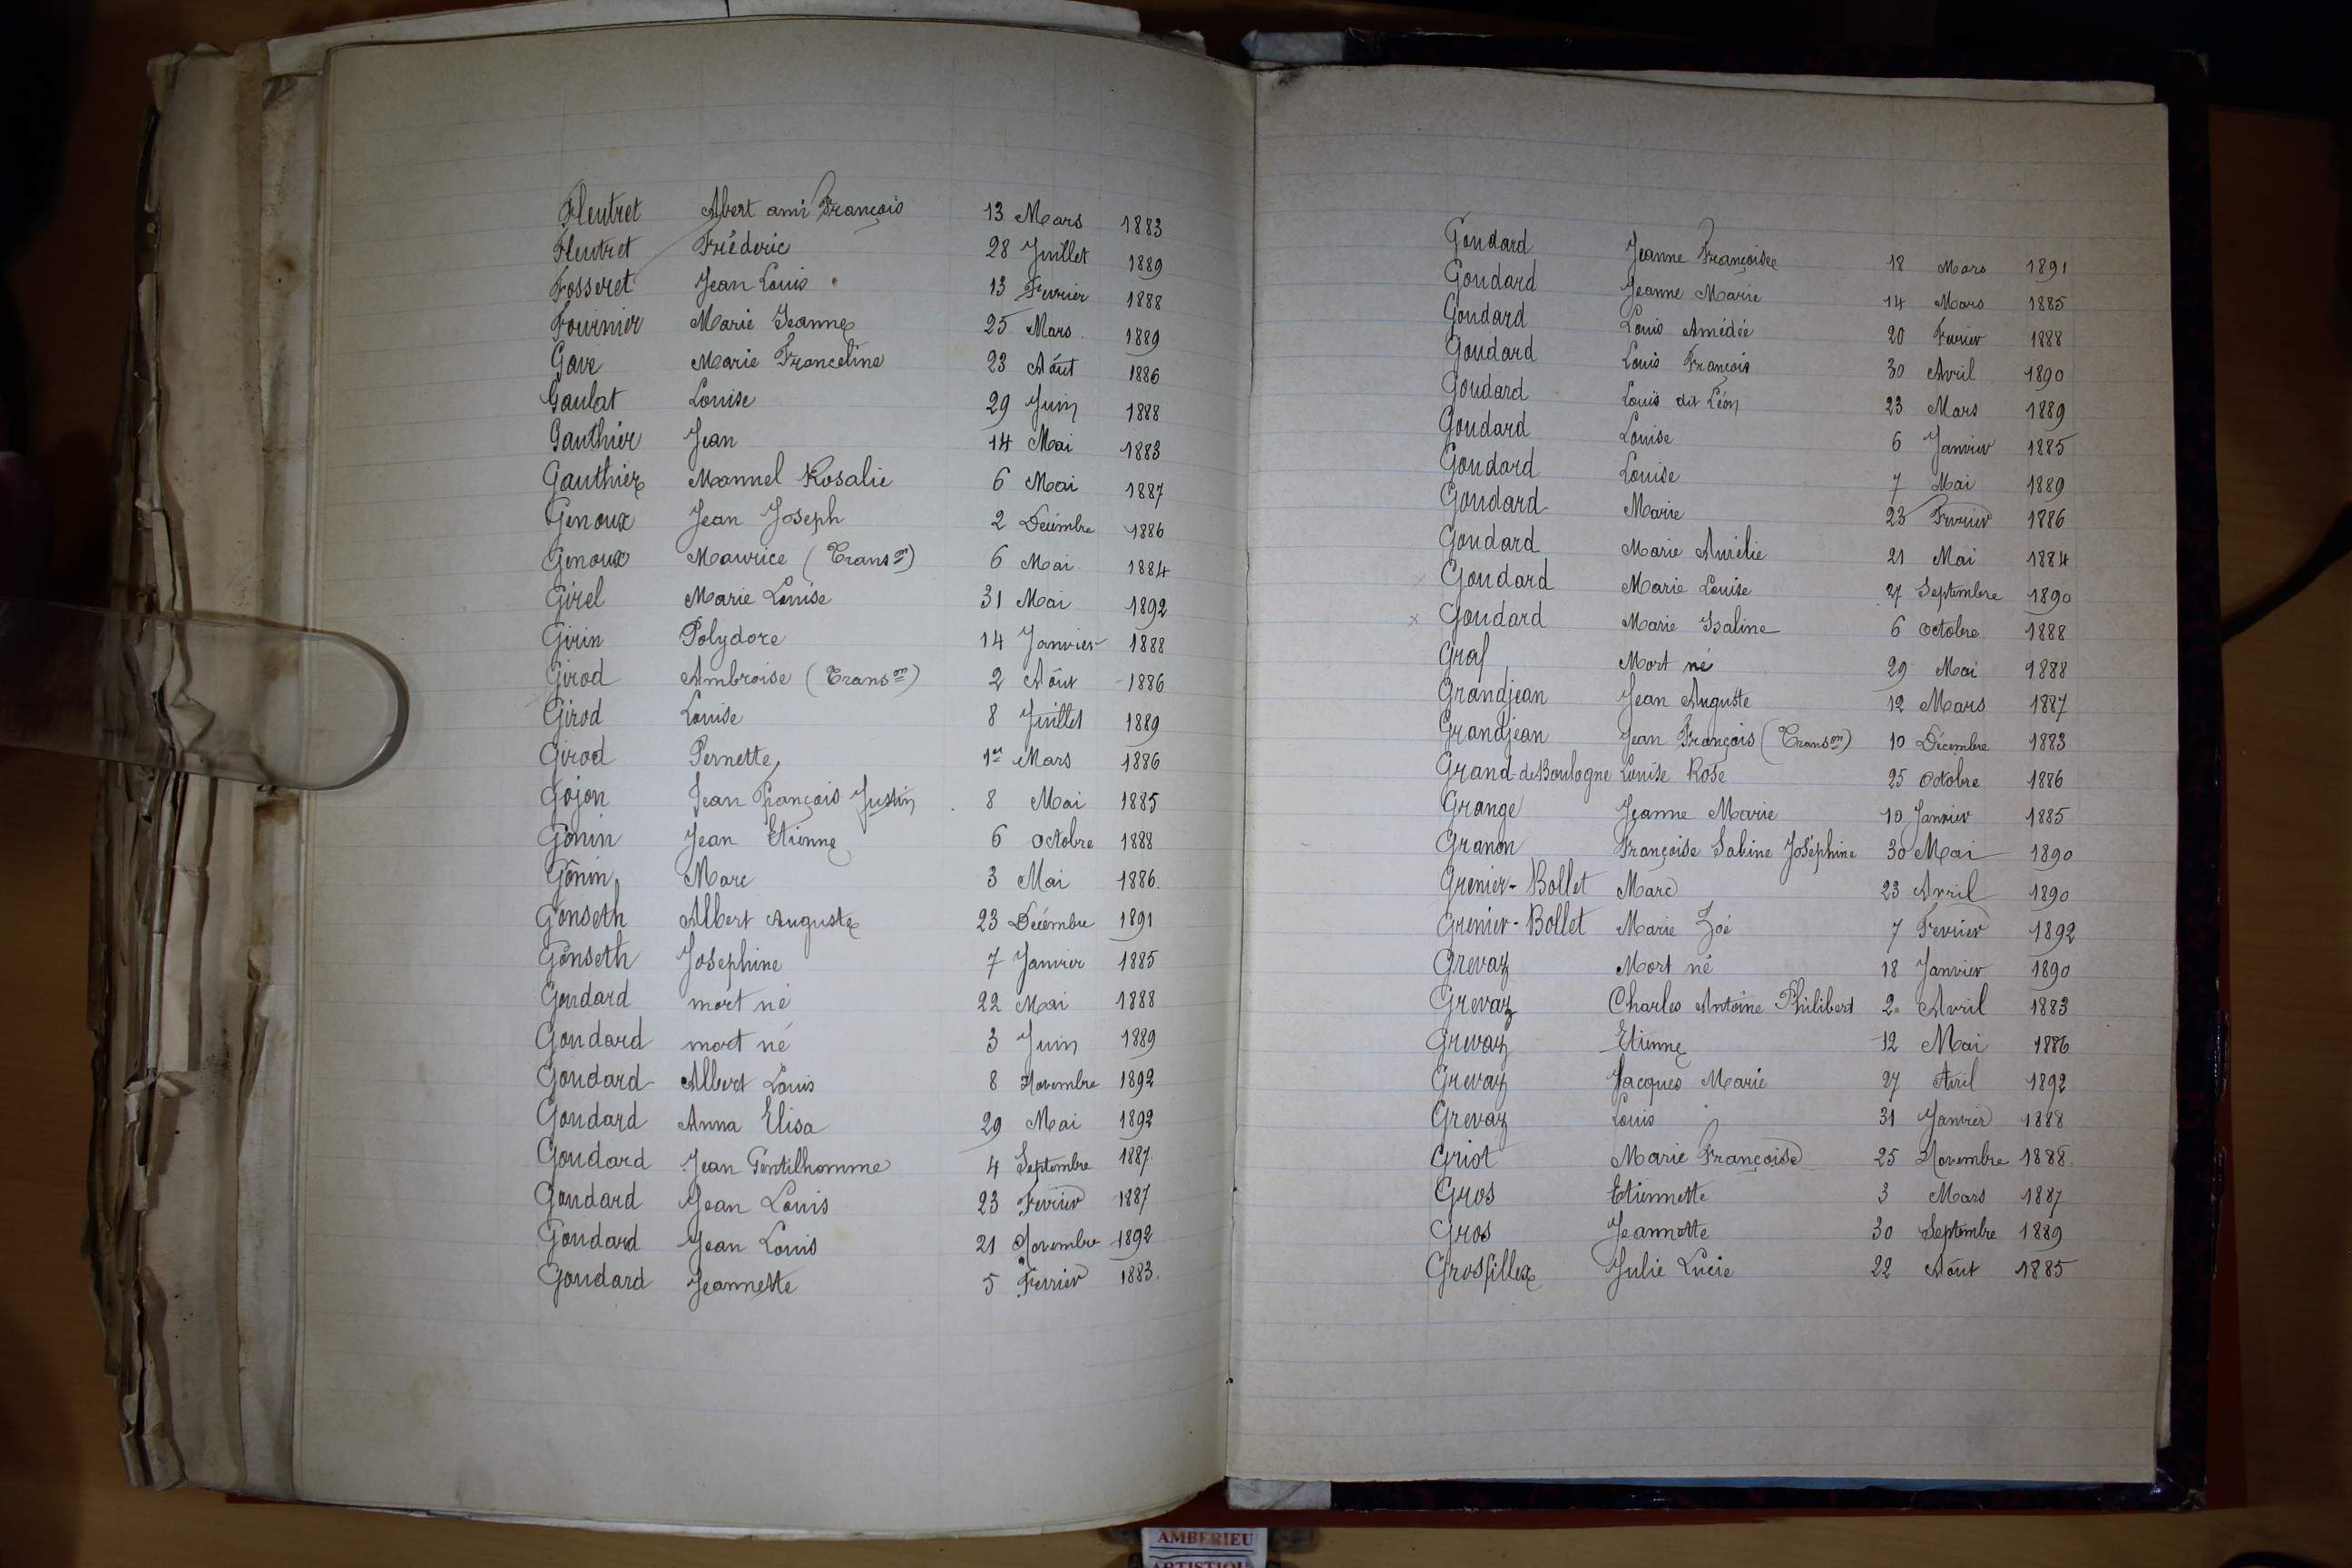 Fleutret Abert ami François 13 Mars 1883
Fleutret Fréderic 28 Juillet 1889
Fosseret Jean Louis 13 Fevrier 1888
Fournier Marie Jeanne 25 Mars 1889
Gave Marie Franceline 23 Août 1886
Gaulat Louise 29 Juin 1888
Gauthier Jean 14 Mai 1883
Gauthier Mannel Rosalie 6 Mai 1887
Genoux Jean Joseph 2 Decembre 1886
Genoux Maurice (Transon) 6 Mai 1884
Girel Marie Louise 31 Mai 1892
Girin Polydore 14 Janvier 1888
Girod Ambroise (Transon) 2 Août 1886
Girod Louise 8 Juillet 1889
Girod Pernette 1er Mars 1886
Gojon Jean François Justin 8 Mai 1885
Gonin Jean Etienne 6 Octobre 1888
Gonin Marc 3 Mai 1886.
Gonseth Albert Auguste 23 Decembre 1891
Gonseth Josephine 7 Janvier 1885
Goudard mort né 22 Mai 1888
Goudard mort né 3 Juin 1889
Goudard Albert Louis 8 Novembre 1892
Goudard Anna Elisa 29 Mai 1892
Goudard Jean Gentilhomme 4 Septembre 1887.
Goudard Jean Louis 23 Fevrier 1887
Goudard Jean Louis 21 Novembre 1892
Goudard Jeannette 5 Fevrier 1883.
Goudard Jeanne Françoise 18 Mars 1891
Goudard Jeanne Marie 14 Mars 1885
Goudard Louis Amédée 20 Fevrier 1888
Goudard Louis François 30 Avril 1890
Goudard Louis dit Léon 23 Mars 1889
Goudard Louise 6 Janvier 1885
Goudard Louise 7 Mai 1889
Goudard Marie 23 Fevrier 1886
Goudard Marie Aurélie 21 Mai 1884
x Goudard Marie Louise 27 Septembre 1890
x Goudard Marie Isaline 6 Octobre 1888
Graf Mort né 29 Mai 1888
Grandjean Jean Auguste 12 Mars 1887
Grandjean Jean François (Transon) 10 Décembre 1883
Grand-de Boulogne Louise Rose 25 Octobre 1886
Grange Jeanne Marie 10 Janvier 1885
Granon Françoise Sabine Joséphine 30 Mai 1890
Grenier-Bollet Marc 23 Avril 1890
Grenier-Bollet Marie Zoé 7 Février 1892
Grevaz Mort né 18 Janvier 1890
Grevaz Charles Antoine Philibert 2 Avril 1883
Grevaz Etienne 12 Mai 1886
Grevaz Jacques Marie 27 Avril 1892
Grevaz Louis 31 Janvier 1888
Griot Marie Françoise 25 Novembre 1888.
Gros Etiennette 3 Mars 1887
Gros Jeannette 30 Septembre 1889
Grosfillex Julie Lucie 22 Août 1885
AMBERIEU